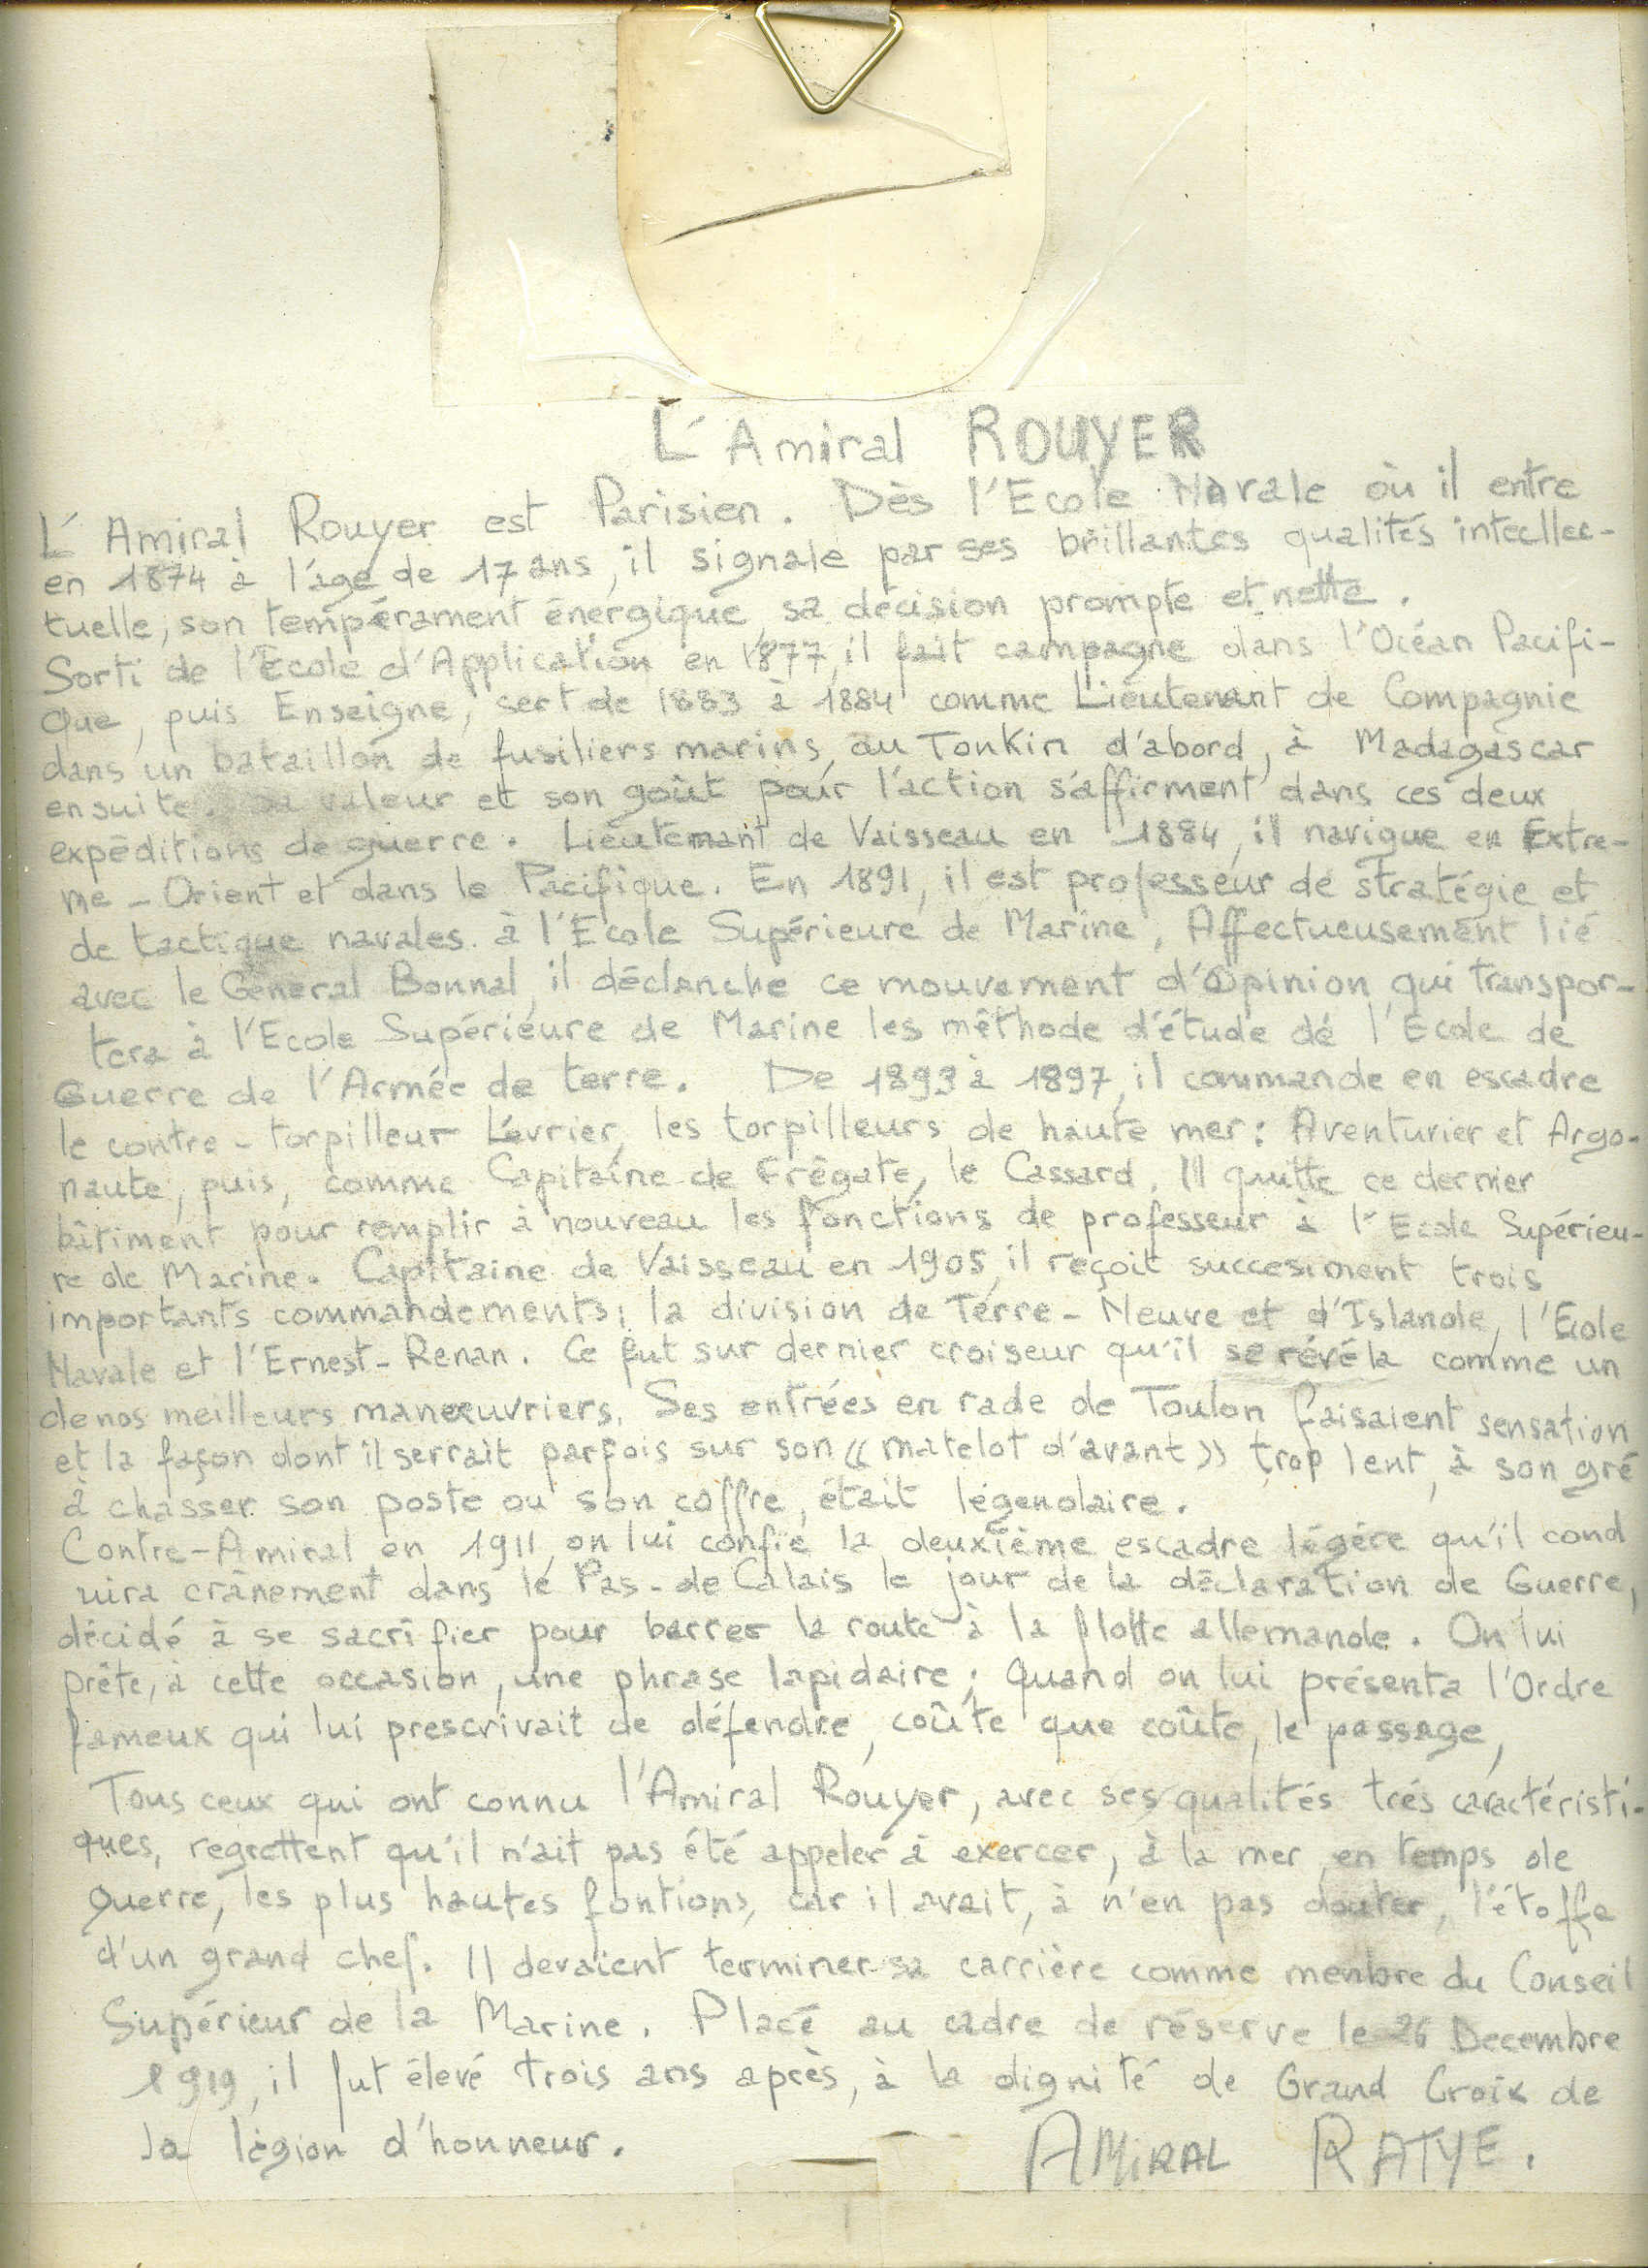 L'Amiral ROUYER
L'Amiral Rouyer est Parisien. Dès l'Ecole Navale où il entre
en 1874 à l'âge de 17 ans, il signale par ses brillantes qualités intecllec-
tuelle, son tempérament énergique, sa décision prompte et nette.
Sorti de l'Ecole d'Application en 1877, il fait campagne dans l'Océan Pacifi-
que, puis Enseigne, sert de 1883 à 1884 comme Lieutenant de Compagnie
dans un bataillon de fusiliers marins, au Tonkin d'abord, à Madagascar
ensuite. Sa valeur et son goût pour l'action s'affirment dans ces deux
expéditions de guerre. Lieutemant de Vaisseau en 1884, il navigue en Extre-
me-Orient et dans le Pacifique. En 1891, il est professeur de stratégie et
de tactique navales à l'Ecole Supérieure de Marine, Affectueusement lié
avec le Général Bonnal, il déclanche ce mouvement d'Opinion qui transpor-
tera à l'Ecole Supérieure de Marine les méthode d'étude de l'Ecole de
Guerre de l'Armée de terre. De 1893 à 1897, il commande en escadre
le contre-torpilleur Lévrier, les torpilleurs de haute mer: Aventurier et Argo-
naute, puis, comme Capitaine de Frégate, le Cassard. Il quitte ce dernier
bâtiment pour remplir à nouveau les fonctions de professeur à l'Ecole Supérieu-
re de Marine. Capitaine de Vaisseau en 1905, il reçoit succesiment trois
importants commandements: la division de Terre-Neuve et d'Islande, l'Ecole
Navale et l'Ernest-Renan. Ce fut sur dernier croiseur qu'il se révéla comme un
de nos meilleurs manœuvriers. Ses entrées en rade de Toulon faisaient sensation
et la façon dont il serrait parfois sur son « matelot d'avant » trop lent, à son gré
à chasser son poste ou son coffre, était légendaire.
Contre-Amiral en 1911, on lui confie la deuxième escadre légére qu'il cond
uira crânement dans le Pas-de Calais le jour de la déclaration de Guerre,
décidé à se sacrifier pour barrer la route à la flotte allemande. On lui
prête, à cette occasion, une phrase lapidaire; Quand on lui présenta l'Ordre
fameux qui lui prescrivait de défendre, coûte que coûte, le passage,
Tous ceux qui ont connu l'Amiral Rouyer, avec ses qualités trés caractéristi-
ques, regrettent qu'il n'ait pas été appeler à exercer, à la mer, en temps de
guerre, les plus hautes fontions, car il avait, à n'en pas douter, l'étoffe
d'un grand chef. Il devaient terminer sa carrière comme menbre du Conseil
Supérieur de la Marine. Placé au cadre de réserve le 26 Decembre
1919, il fut élevé trois ans après, à la dignité de Grand Croix de
la légion d'honneur.
AMIRAL RATYE.